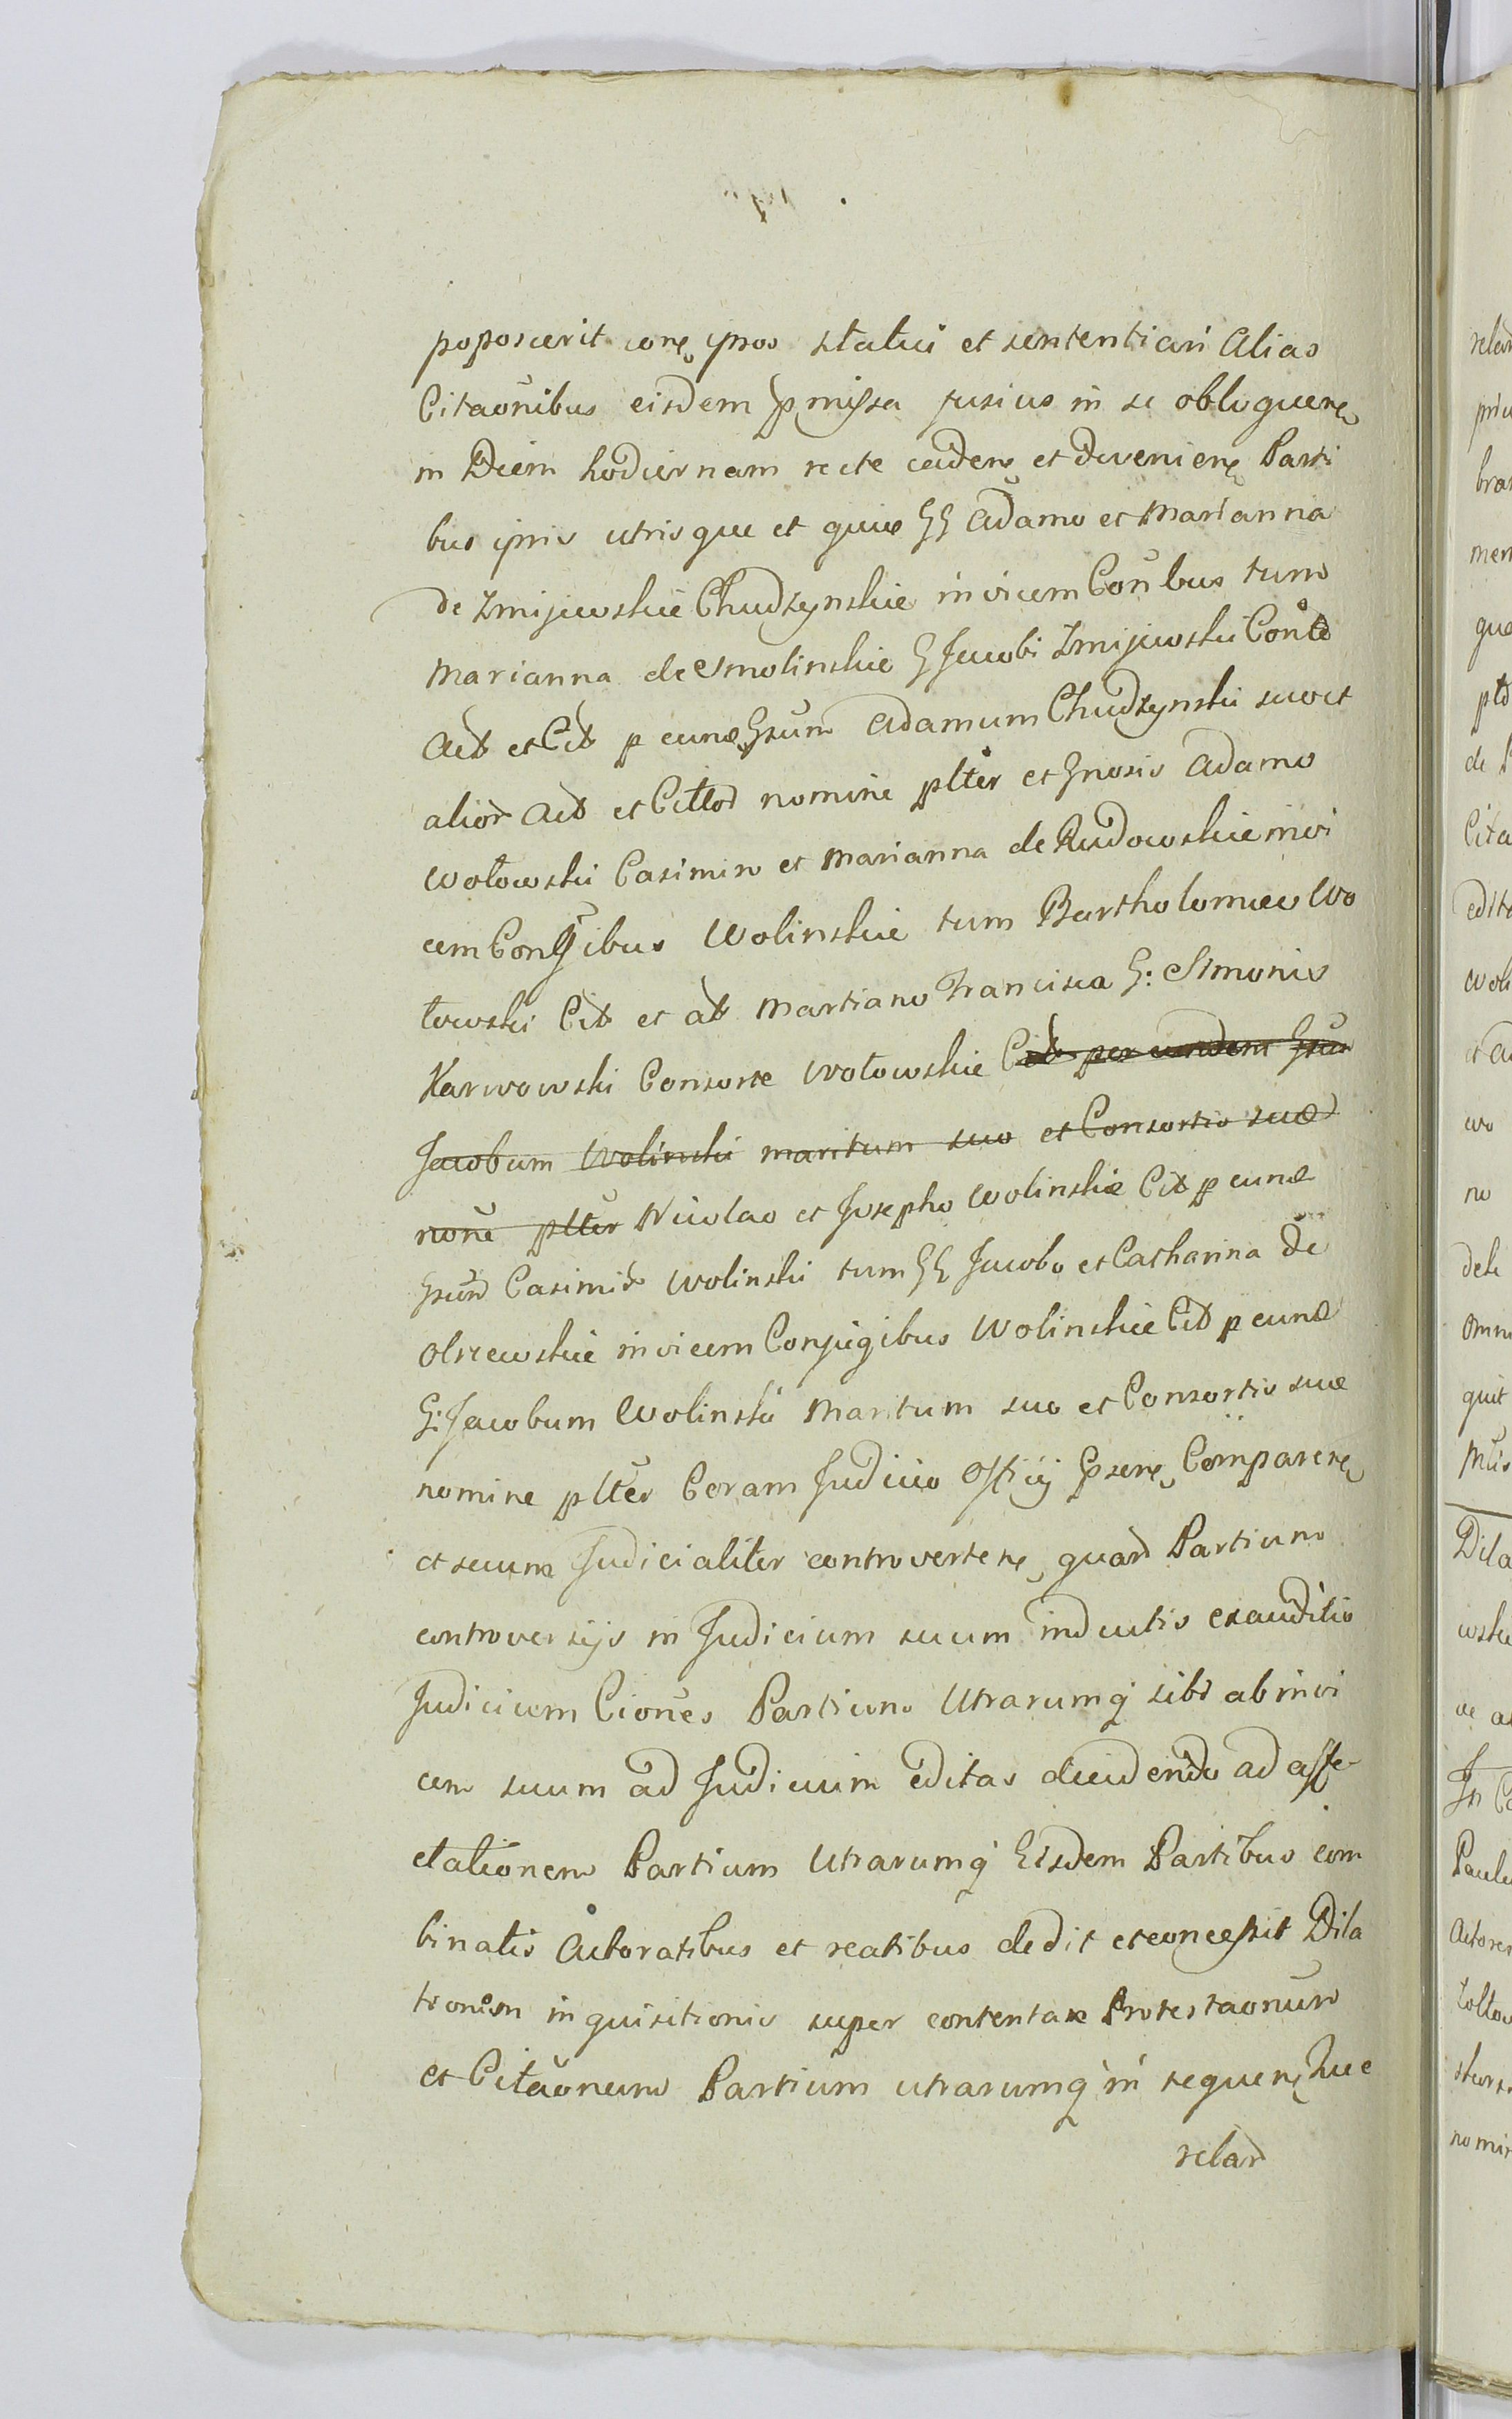 poposcerit core ipsos statui et sententiari Alias
Citaõnibus eisdem pmissa fusius in se obloquen
in Diem hodiernam recte caden et devenien Parti
bus ipsis utrisque et quive GG Adamo et Marianna
de Zmijewskie Chudzynskie invicem Conbus tum
Marianna de Smolinskie G Jacobi Zmijewski Conte
Act et Cit p eund Gsum Adamum Chudzynski suo et
alior Act et Cittor nomine plter et Gnosis Adamo
Wołowski Casimiro et Marianna de Rudowskie invi
cem Conjgibus Wolinskie tum Bartholomeo Wo
łowski Cit et act Martiano Francisca G: Simonis
Karwowski Consorte Wołowskie Cit per eundem Gsum
Jacobum Wolinski maritum suo et Consortis suæ
none plter Nicolao et Josepho Wolinskie Cit p eund
Gsum Casimir Wolinski tum GG Jacobo et Catharina de
Olszewskie invicem Conjugibus Wolinskie Cit p eund
G: Jacobum Wolinski Maritum suo et Consortis suæ
nomine plter Coram Judicio Officij Psen Comparen
et secum Judicialiter controverten, quar Partium
controversijs in Judicium suum inductis exauditis
Judicium Ciones Partium Utrarumq sibi ab invi
cem suum ad Judicium editas decidendo ad affe
ctationem Partium Utrarumq Eisdem Partibus com
binatis Actoratibus et reatibus dedit et concessit Dila
tionem inquisitionis super contenta Protestaonum
et Citaonum Partium utrarumq in sequen Quer
relar
relar
Cita
Dila
In
nomin